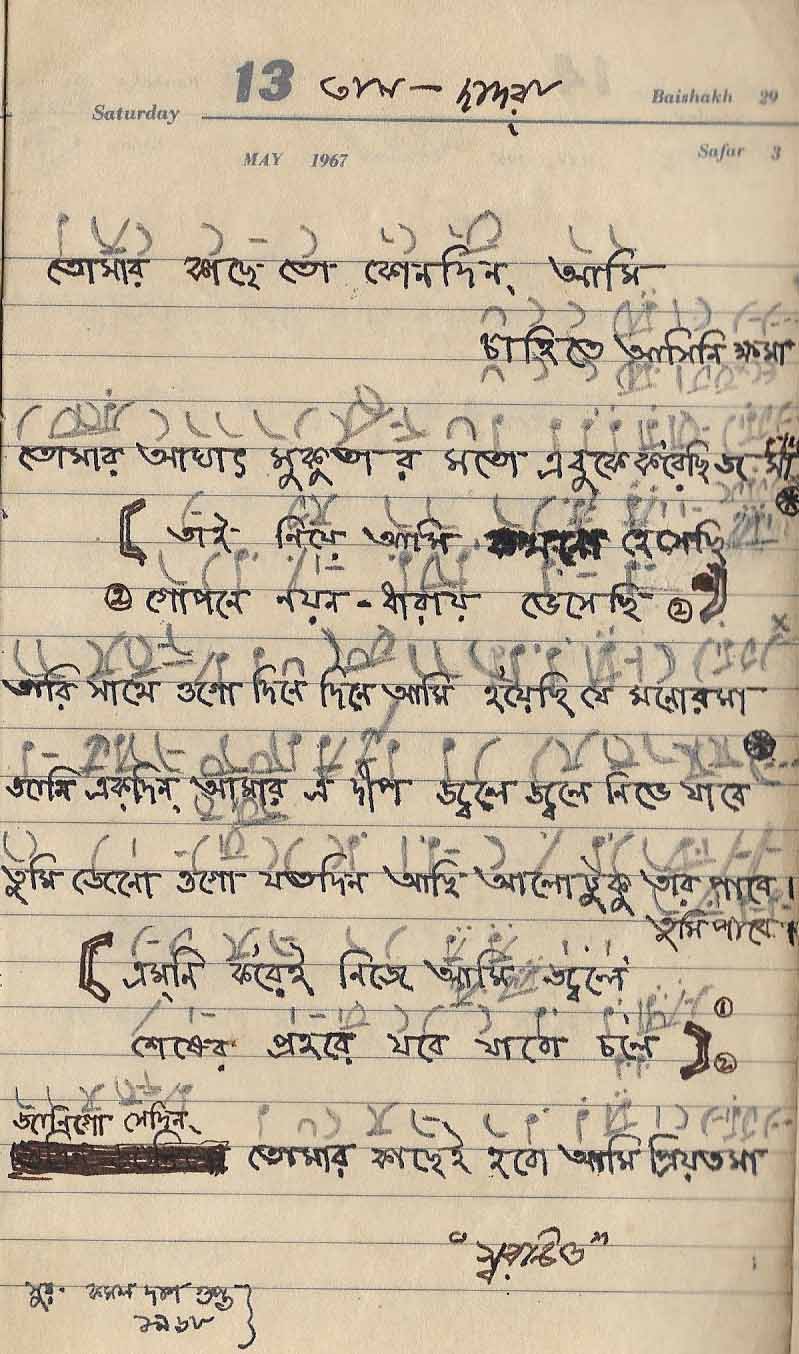 13 তাল - দাদরা
Saturday
Baishakh 29
MAY 1967
Safar 3
তোমার কাছে তো কোনদিন, আমি
চাহিতে আসিনি ক্ষমা
তোমার আঘাৎ মুকুতার মতো এবুকে করেছি জমা
[ তাই নিয়ে আমি হেসেছি
② গোপনে নয়ন-ধারায় ভেসেছি ② ]
তারি সাথে ওগো দিনে দিনে আমি হয়েছি যে মনোরমা
জানি একদিন, আমার এ দীপ জ্বলে জ্বলে নিভে যাবে
তুমি জেনো ওগো যতদিন আছি আলোটুকু তার পাবে।
তুমি পাবে।
[ এম্‌নি করেই নিজে আমি জ্বলে
শেষের প্রহরে যবে যাবো চলে ] ① ②
জানিগো সেদিন,
তোমার কাছেই হবো আমি প্রিয়তমা
সুর- কমল দাশ গুপ্ত
১৯৬৮